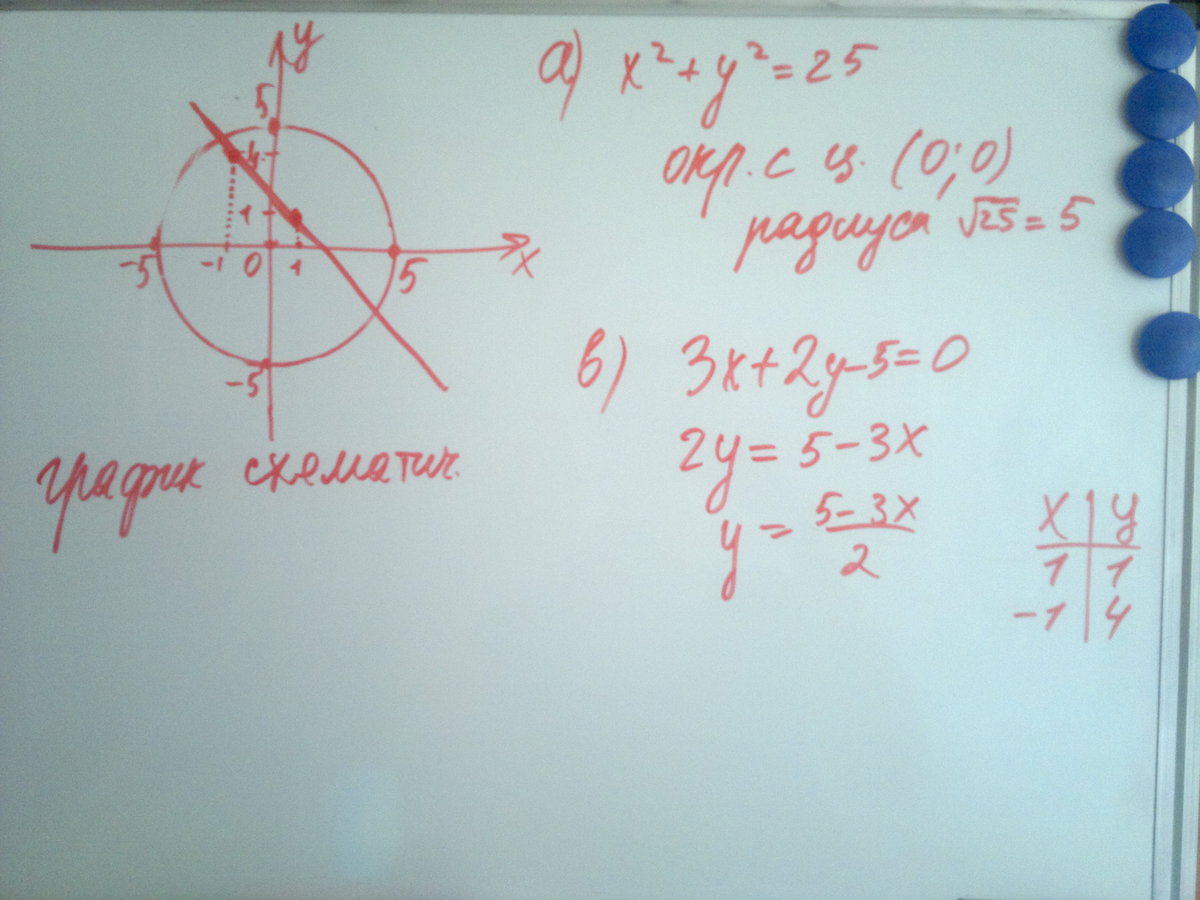 y
5
4
1
-5 -1 0 1 5 x
-5
график схематич.
а) x² + y² = 25
окр. с ц. (0; 0)
радиуса √25 = 5
в) 3x + 2y - 5 = 0
2y = 5 - 3x
y = 5 - 3x / 2
x | y
1 | 1
-1 | 4